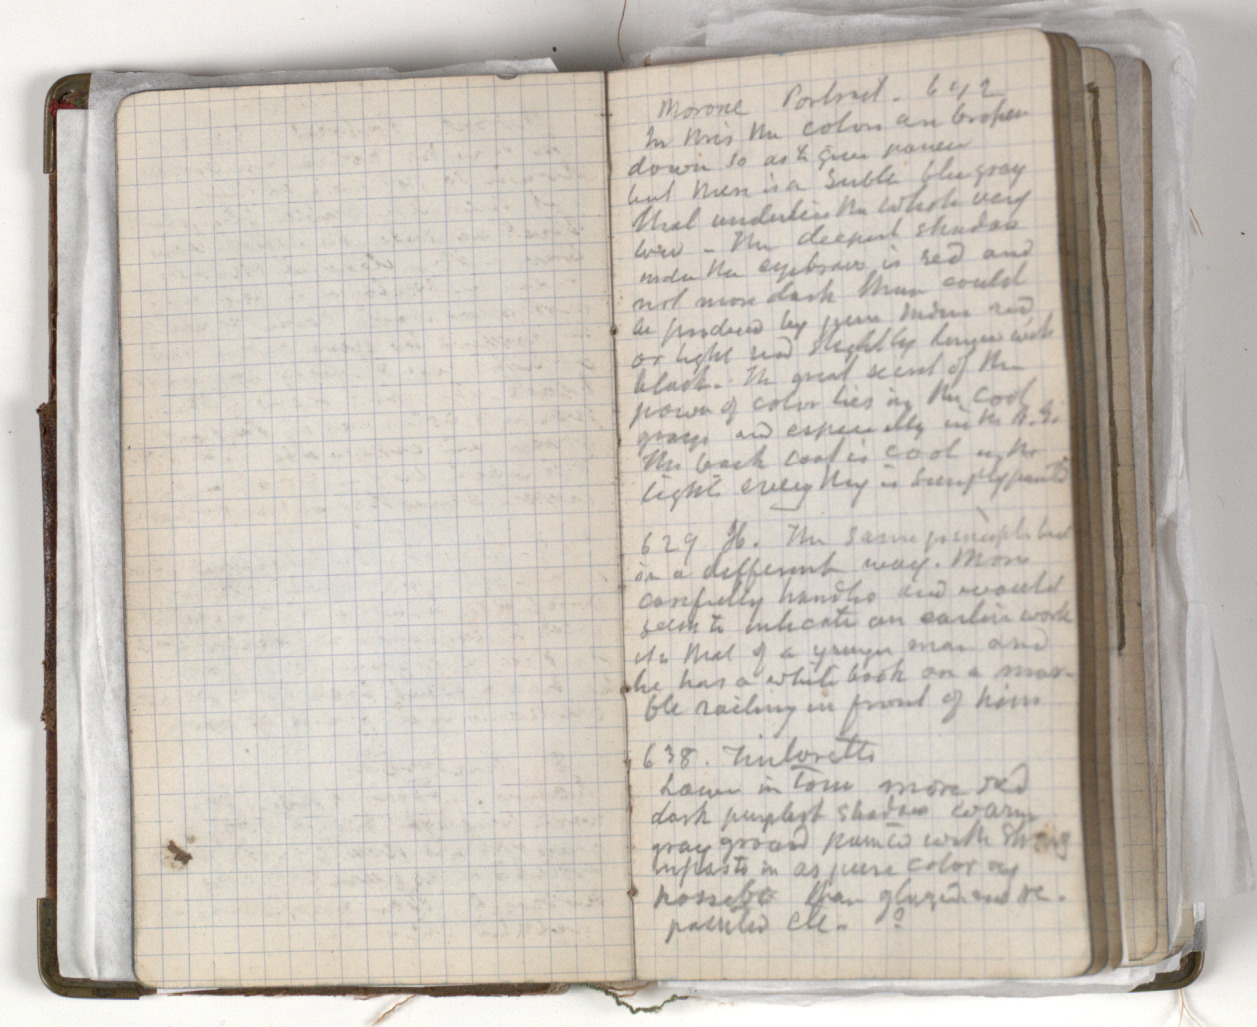 Morone Portrait. 642
In this the colors are broken
down so as to give power
but there is a subtle blue gray
that underlies the whole very
low - The deepest shadow
under the eyebrows is red and
not more dark than could
be produced by pure Indian red
or light red slightly with
black. The great secret of the
power of color lies in the cool
grays and especially in the B.G.
The back coat is cool in the
light everything is simply painted
629 Jb. The same principle but
in a different way. More
carefully handled and would
seem to indicate an earlier work
its that of a younger man and
he has a white book on a mar-
ble railing in front of him
638. Tintoretto
Lower in tone more red
dark purplest shadows warm
gray ground painted with strong
impasto in as pure color as
possible than glazed and re-
painted etc. ?